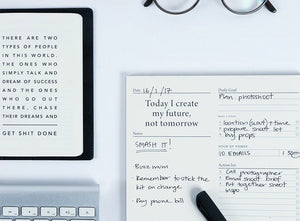 THERE ARE TWO
TYPES OF PEOPLE
IN THIS WORLD.
THE ONES WHO
SIMPLY TALK AND
DREAM OF SUCCESS
AND THE ONES
WHO GO OUT
THERE, CHASE
THEIR DREAMS AND
GET SHIT DONE
Date 16/1/17
Today I create
my future,
not tomorrow
Notes
SMASH IT!
Buzz mum
Remember to stick the
kit on change
Pay phone bill
Daily Goal
Plan photoshoot
location (scout) + time
prepare shoot list
buy props
10 EMAILS
Action list
Call photographer
Email shoot brief
Put together shoot
inspo